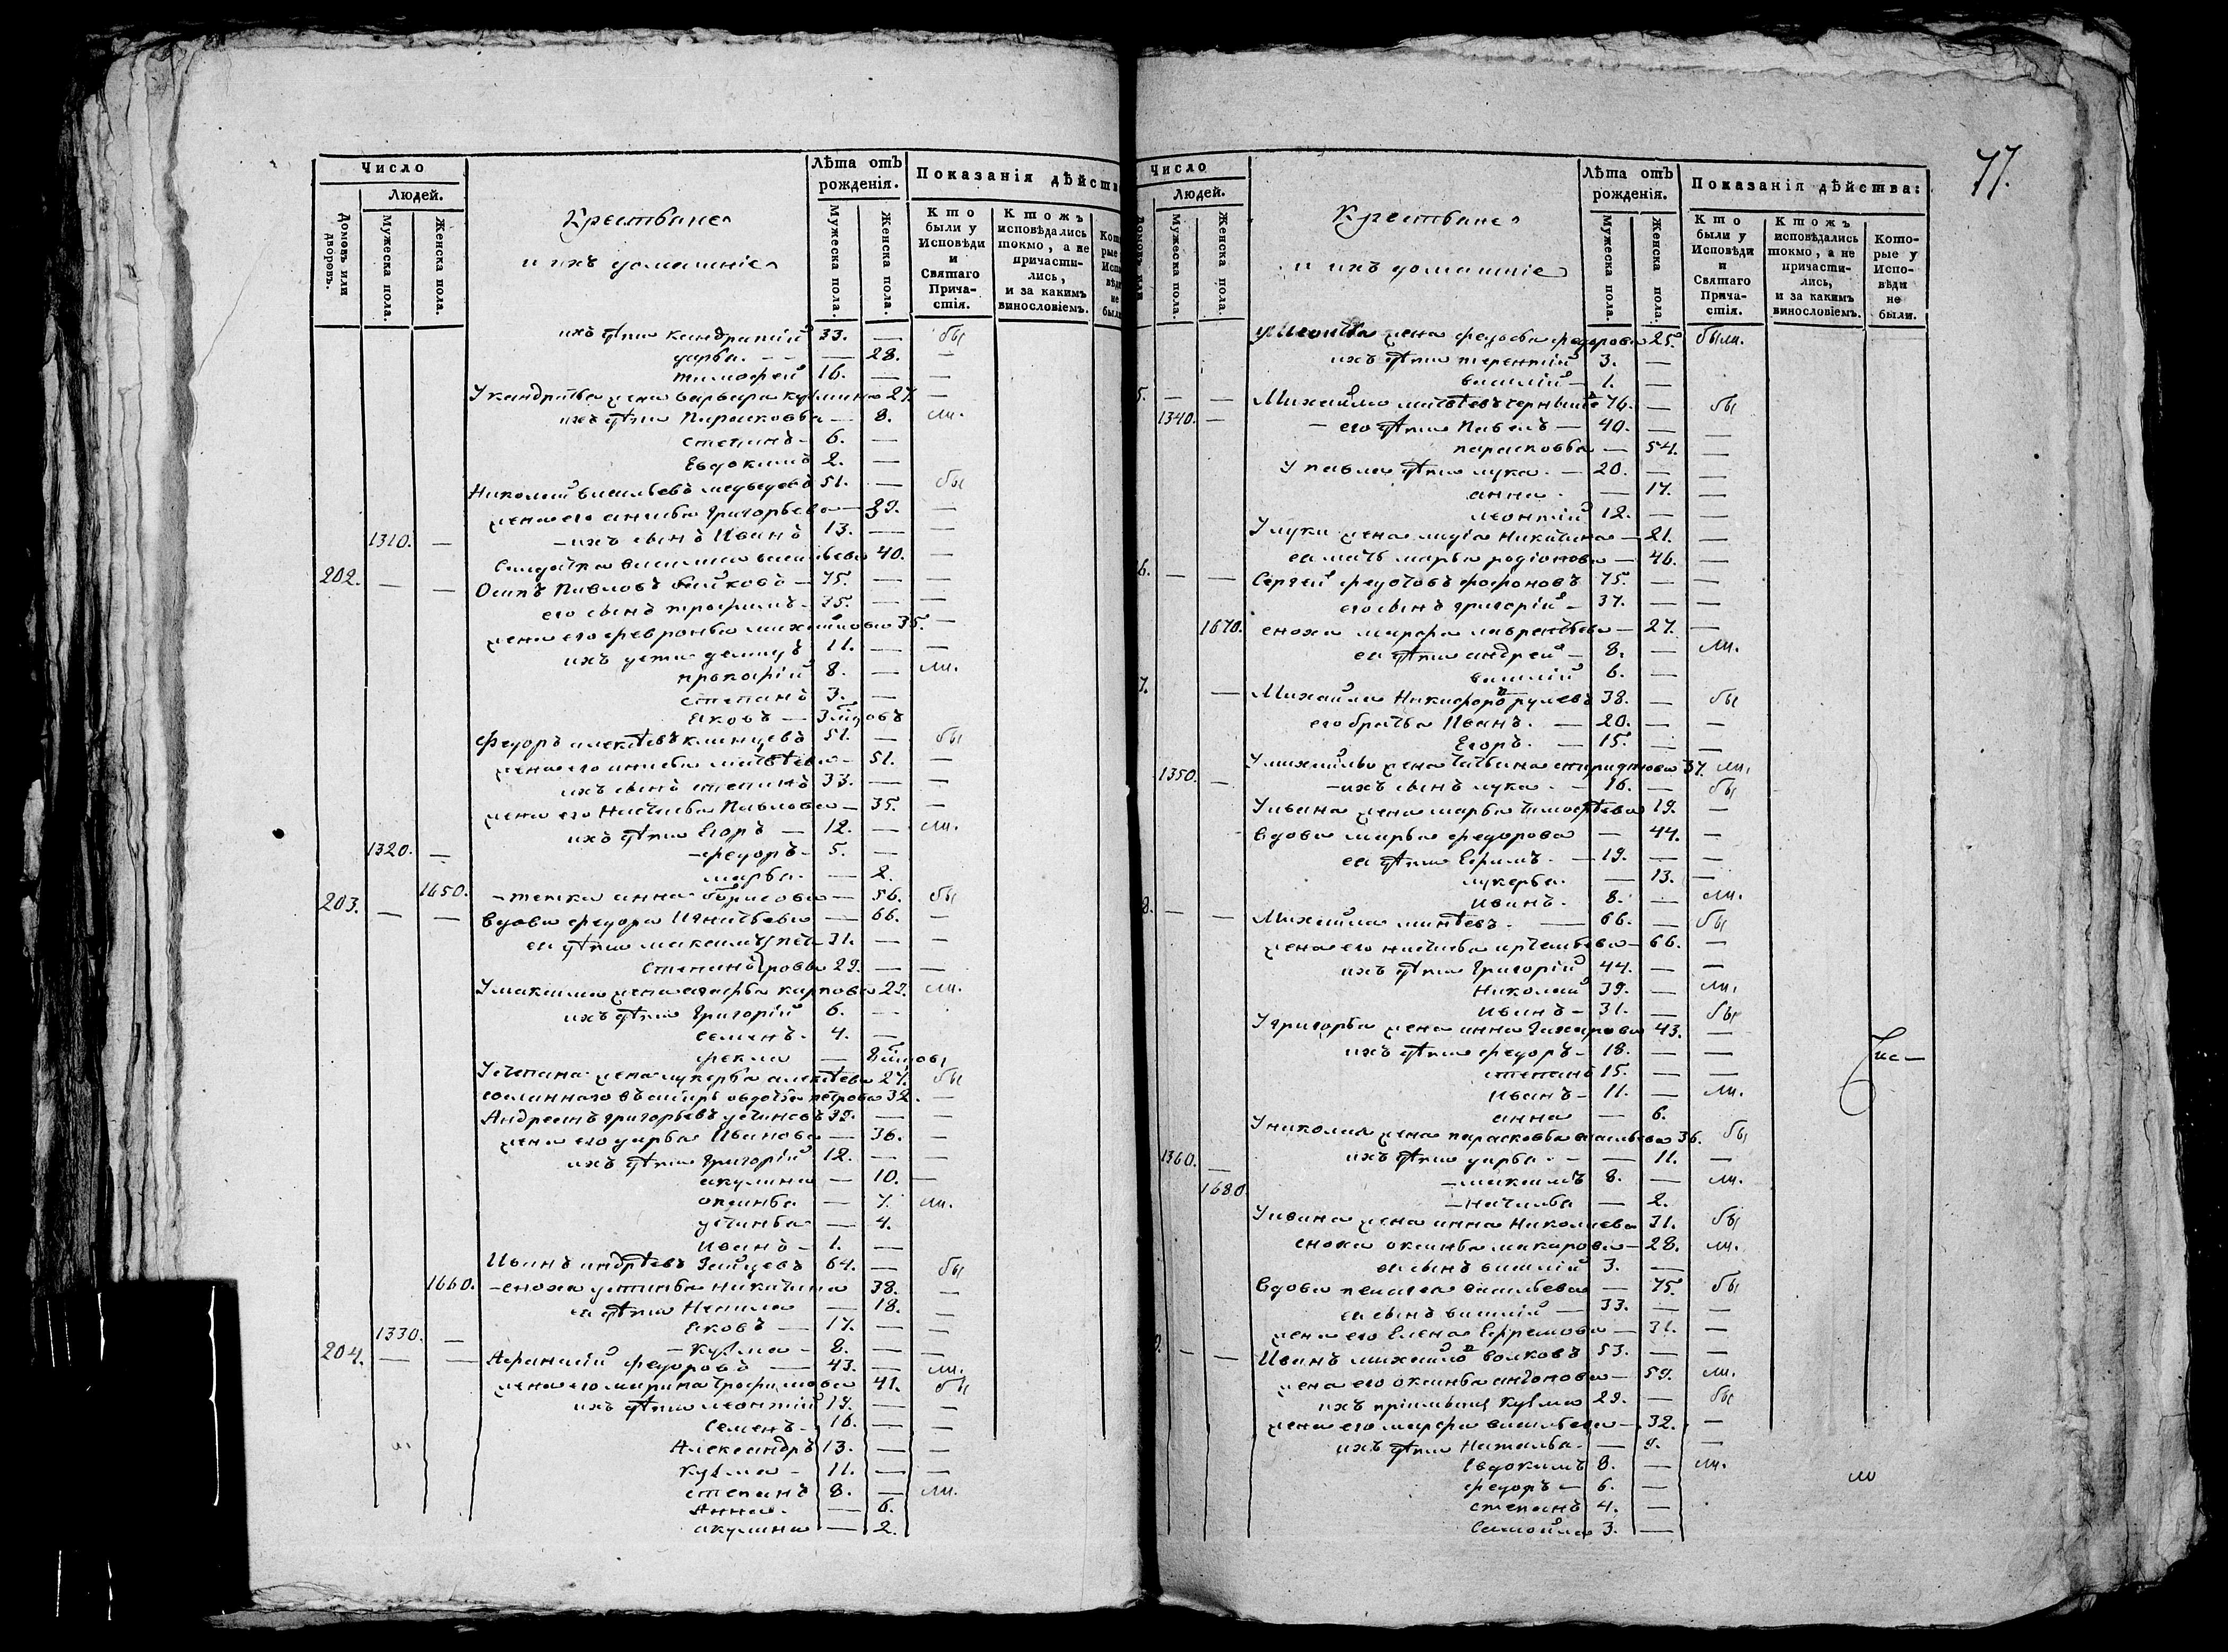 Число
Людей.
Домовъ или дворовъ.
Мужеска пола.
Женска пола.
Крестьяне
и ихъ домашніе
Лѣта отъ рожденія.
Мужеска пола.
Женска пола.
Показанія дѣйств
Кто были у Исповѣди и Святаго Причастія.
Ктожъ исповѣдались токмо, а не причастились, и за какимъ винословіемъ.
ихъ дѣти кандратій 33. — бы
дарья. — — 28. —
тимофей 16. — —
У кандратья жена варвара кузмина 27. —
ихъ дѣти Парасковья — 8. ли.
степанъ — 6. —
Евдокимъ 2. —
Николай васильевъ медведевъ 51. — бы
жена его анисья григорьева — 39. —
1310. — ихъ сынъ Иванъ 13. — —
Салдатка василиса васильева 40. —
202. — — Осипъ Павловъ — 75. — —
его сынъ трофимъ — 35. — —
жена его февронья михайлова 35. —
ихъ дети 11. — —
прокофій 8. — ли.
степанъ 3. —
яковъ — 3
федоръ алексѣевъ климцевъ 51. — бы
жена его анисья матвѣева — 51. —
ихъ сынъ степанъ 33. — —
жена его Настасья Павлова — 35. —
ихъ дѣти Егоръ — 12. — ли.
1320. — федоръ — 5. —
марья. — 2.
1650. — тетка анна борисова — 56. бы
203. — — Вдова федора Игнатьева — 66. —
ея дѣти максимъ 31. — —
Степанъ 29. — —
У максима жена агафья карпова 29. ли.
ихъ дѣти григорій 6. —
семенъ. 4. —
фекла — 8
У степана жена лукерья алексѣева 27. бы
авдотья петрова 32. —
Андреянъ григорьевъ устиновъ 39. — —
жена его дарья Иванова — 36. —
ихъ дѣти григорій 12. — —
акулина — 10. —
оксинья — 7. ли.
устинья — 4.
Иванъ — 1. —
Иванъ андрѣевъ Зайцевъ 64. — бы
1660. — сноха устинья никитина 38. —
ея дѣти Ненила — 18. —
1330. — яковъ — 17. — —
— кузма — 8. — —
204. — — Афанасій федоровъ — 43. — ли.
жена его марина трофимова 41. бы
ихъ дѣти леонтій 19. — —
Семенъ — 16. — —
Александръ 13. — —
кузма — 11. — —
степанъ 8. — ли.
Анна. — 6.
акулина — 2.
77.
Число
Людей.
Мужеска пола.
Женска пола.
Крестьяне
и ихъ домашніе
Лѣта отъ рожденія.
Мужеска пола.
Женска пола.
Показанія дѣйства:
Кто были у Исповѣди и Святаго Причастія.
Ктожъ исповѣдались токмо, а не причастились, и за какимъ винословіемъ.
Которые у Исповѣди не были.
У леонтья жена федосья федорова 25. были.
ихъ дѣти терентій 3. —
василій — 1. —
5. — — Михайла матвѣевъ 76. — бы
1340. — его дѣти Павелъ — 40. — —
парасковья — 54. —
У павла дѣти лука. — 20. — —
анна. — 17. —
леонтій 12. — —
У луки жена лидіа Никитина — 21. —
ея мать марья родіонова — 46. —
6. — — Сергей федотовъ фофоновъ 75. — —
его сынъ григорій — 37. — —
1670. сноха марфа лаврентьева — 27. —
ея дѣти андрей — 8. — ли.
василій 6. —
7. — Михайла Никифоровъ рулевъ 38. — бы
его братья Иванъ. — 20. — —
Егоръ. — 15. — —
У михайлы жена татьяна спиридонова 37. ли.
1350. — ихъ сынъ лука. — 16. — бы
У ивана жена марья тимофѣева 19. —
Вдова марья федорова — 44. —
ея дѣти Ефимъ. — 19. — —
лукерья. — 13. —
Иванъ. 8. — ли.
8. — — Михайла минѣевъ. — 66. — бы
жена его настасья артемьева — 66. —
ихъ дѣти григорій 44. — —
Николай 39. — ли.
Иванъ — 31. — бы
У григорья жена анна Захарова 43. —
ихъ дѣти федоръ — 18. — —
степанъ 15. — —
Иванъ — 11. — ли.
анна — 6.
У николая жена парасковья васильева 36. бы
1360. — ихъ дѣти дарья. — — 11. —
1680 — максимъ 8. — ли.
— наталья — 2.
У ивана жена анна Николаева 31. бы
сноха оксинья макарова — 28. ли.
ея сынъ василій 3. —
Вдова пелагея васильева — 75. бы
ея сынъ василій — 33. — —
жена его Елена Ефремова — 31. —
9. — — Иванъ михайловъ волковъ 53. — —
жена его оксинья антонова — 59. ли.
ихъ пріимышъ кузма 29. — бы
жена его марфа васильева — 32. —
ихъ дѣти Наталья. — 9. —
Евдокимъ 8. — ли.
федоръ — 6. —
степанъ 4. —
Самойла 3. —